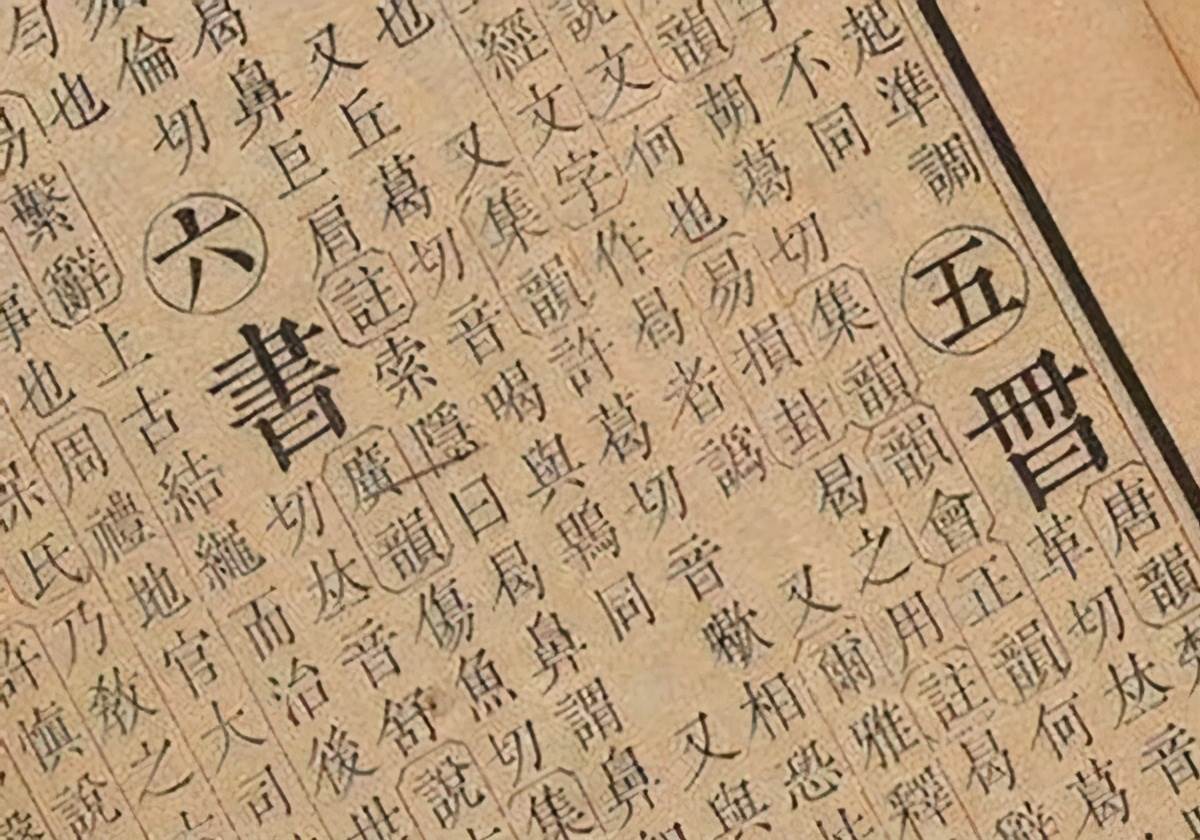 起準調五唐韻
不同革切𠀤音
韻胡葛切集韻韻會正韻何葛
說文何也易損卦曷之用註曷
經文字作曷者譌又爾雅釋
也又集韻許葛切音歇相恐
又丘葛切音喝與鶡同又與
曷鼻巨肩註索隱曰曷鼻謂鼻
倫切六書廣韻傷魚切集
也切𠀤音舒說
易繫辭上古結繩而治後世
事也周禮地官大司
保氏乃敎之
許愼說